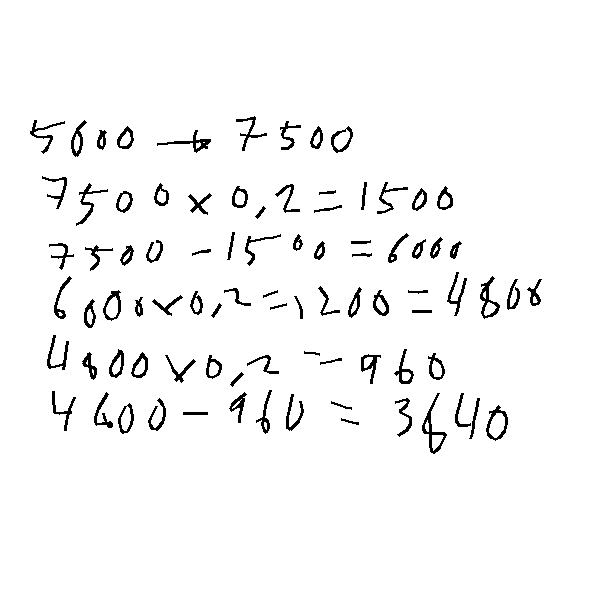 5600 → 7500
7500 x 0,2 = 1500
7500 - 1500 = 6000
6000 x 0,2 = 1200 = 4800
4800 x 0,2 = 960
4800 - 960 = 3840